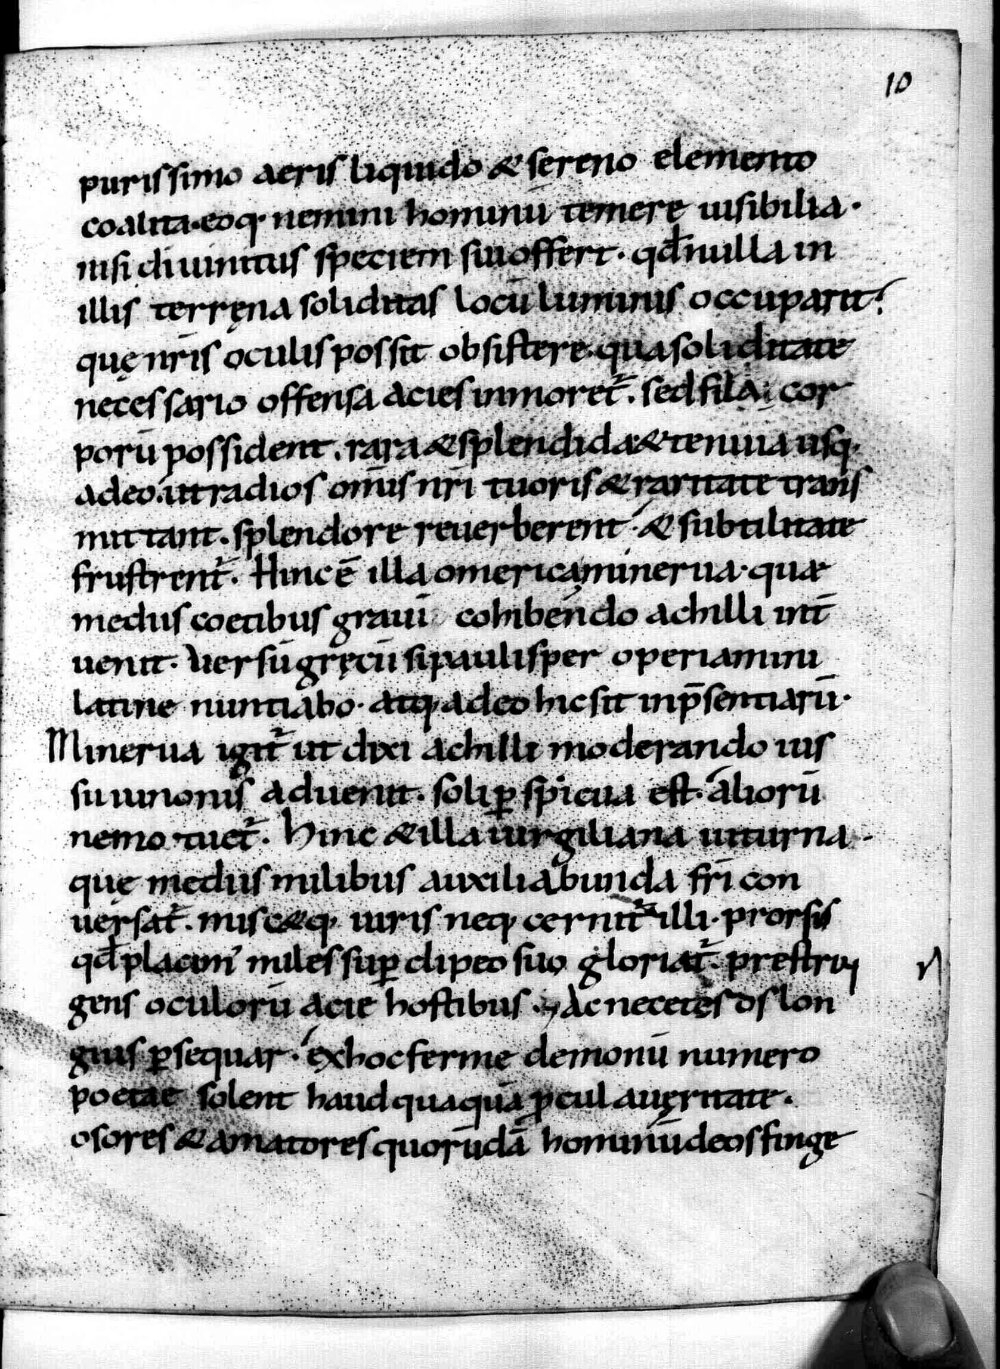 10
purissimo aeris liquido & sereno elemento
coalita·eoq· nemini hominū temere uisibilia·
nisi diuinitus speciem sui offert· qđ nulla in
illis terręna soliditas locū luminis occuparit?
quę nr̄is oculis possit obsistere· qua soliditate
necessario offensa acies inmoret̄. sed fila cor
porū possident. rara & splendida & tenuia usq·
adeo ut radios om̄is nr̄i tuoris & raritate trans
mittant. splendore reuerberent· & subtilitate
frustrent̄. Hinc ē illa omericą minerua· quæ
mediis coetibus graiū cohibendo achilli int̄
uenit. Versū gręcū si paulisper operiamini
latine nuntiabo· atq adeo hic sit inp̄sentiarū·
Minerua igit̄ ut dixi achilli moderando ius
su iunonis aduenit. soli ꝑspicua est· aliorū
nemo tuet̄. Hinc & illa uirgiliana uiturna·
quę mediis milibus auxiliabunda fr̄i con
uersat̄. misc&q; uiris neq; cernit̄ illi· prorsis
qđ placuin' miles suꝑ clipeo suo gloriat̄. prestrin
gens oculorū acie hostibus. Ac neceteros lon
gius ꝑsequar· ex hoc ferme demonū numero
poetae solent haud quaquā ꝓcul a uęritate.
osores & amatores quorūdā hominū deos finge